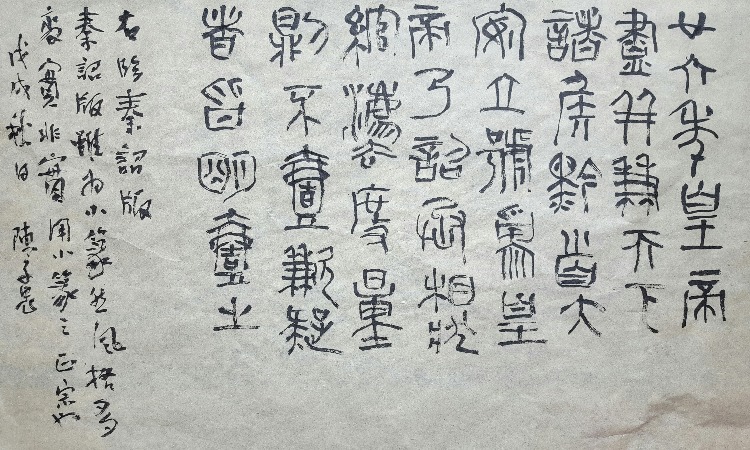 廿六年皇帝
盡并兼天下
諸侯黔首大
安立號為皇
帝乃詔丞相狀
綰灋度量
則不壹歉疑
者皆明壹之
右臨秦詔版
秦詔版雖為小篆然風格多
變實非實用小篆之正宗也
戊戌秋日 陳子